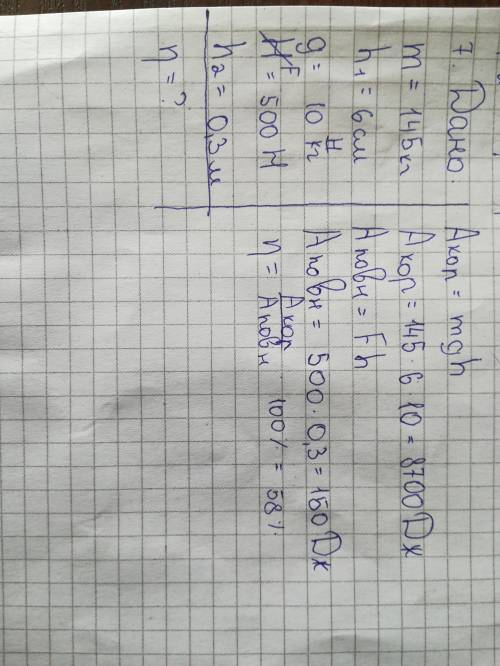 7. Дано:
m = 145 кг
h₁ = 6 см
g = 10 Н/кг
F = 500 Н
h₂ = 0,3 м
η = ?
Aкор = mgh
Aкор = 145 · 6 · 10 = 8700 Дж
Aповн = Fh
Aповн = 500 · 0,3 = 150 Дж
η = Aкор/Aповн · 100% = 58%